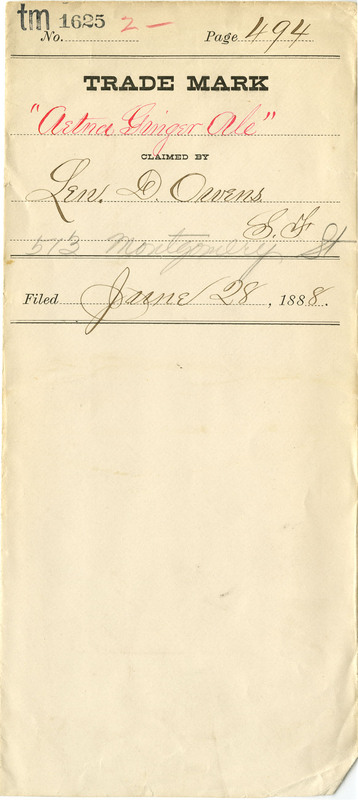 tm 1625 2-
No. Page 494
TRADE MARK
"Aetna Ginger Ale"
CLAIMED BY
Len. D. Owens
S. F
573 Montgomery St
Filed June 28, 1888.